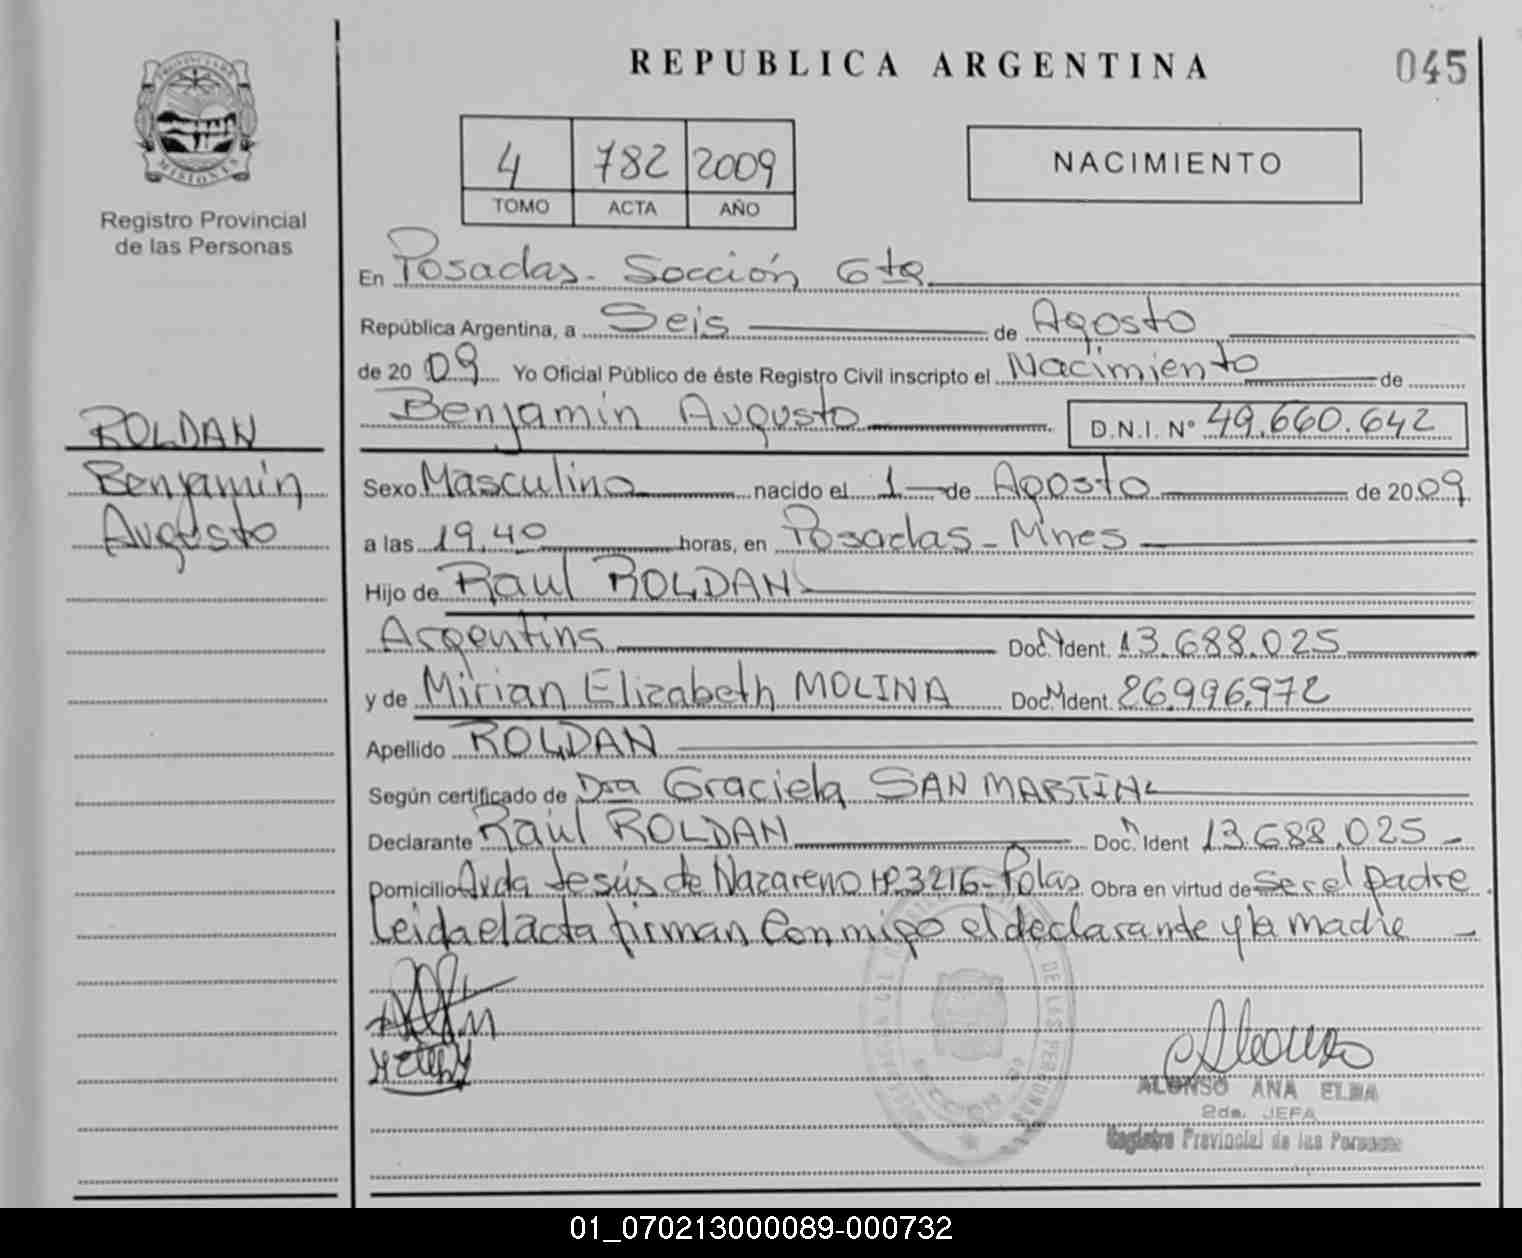 REPUBLICA ARGENTINA
045
PROVINCIA DE
MISIONES
Registro Provincial
de las Personas
4 782 2009
TOMO ACTA AÑO
NACIMIENTO
En Posadas - Sección 6ta
República Argentina, a Seis de Agosto
de 2009 Yo Oficial Público de éste Registro Civil inscripto el Nacimiento de
Benjamin Augusto D.N.I. Nº 49.660.642
ROLDAN
Benjamin
Augusto
Sexo Masculino nacido el 1 de Agosto de 2009
a las 19.40 horas, en Posadas - Mnes
Hijo de Raul ROLDAN
Argentins Doc. Ident. 13.688.025
y de Mirian Elizabeth MOLINA Doc. Ident. 26.996.972
Apellido ROLDAN
Según certificado de Dra Graciela SAN MARTIN
Declarante Raúl ROLDAN Doc. Ident 13.688.025 -
Domicilio Avda Jesús de Nazareno Nº 3216 - Pdas Obra en virtud de ser el padre
Leida el acta firman Conmigo el declarante y la madre -
ALONSO ANA ELBA
2da. JEFA
Registro Provincial de las Personas
01_070213000089-000732